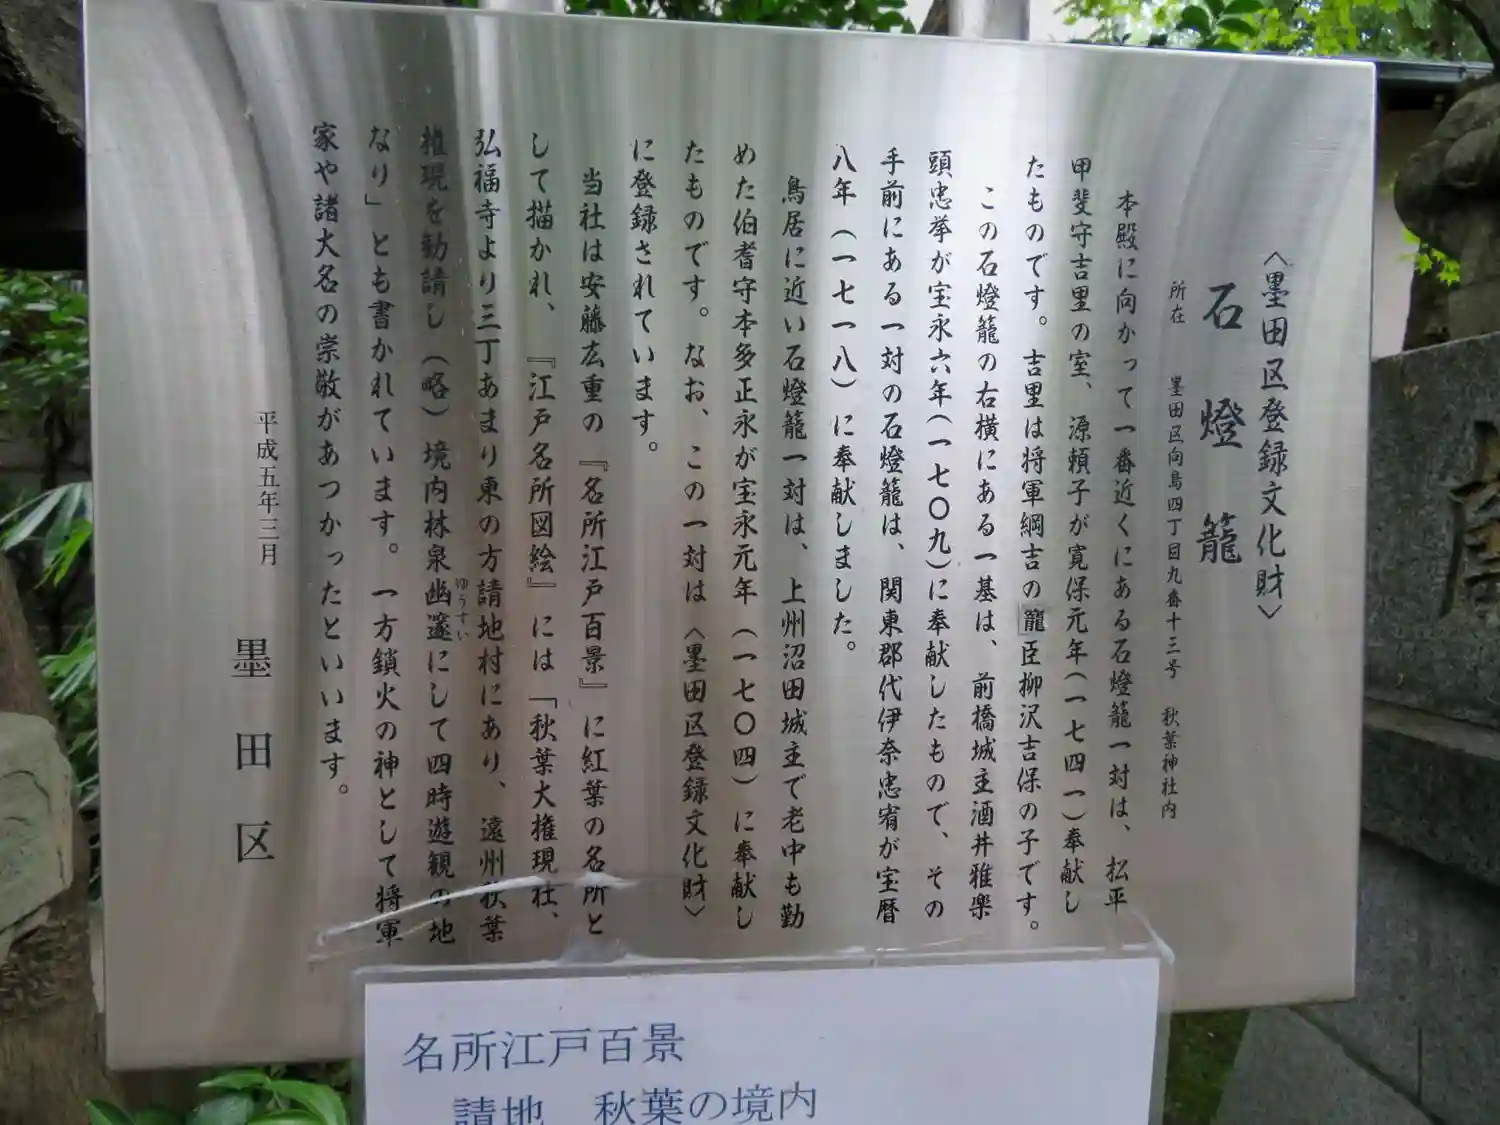 〈墨田区登録文化財〉
石燈籠
所在 墨田区向島四丁目九番十三号 秋葉神社内
本殿に向かって一番近くにある石燈籠一対は、松平
甲斐守吉里の室、源頼子が寛保元年(一七四一)奉献し
たものです。吉里は将軍綱吉の寵臣柳沢吉保の子です。
この石燈籠の右横にある一基は、前橋城主酒井雅楽
頭忠挙が宝永六年(一七〇九)に奉献したもので、その
手前にある一対の石燈籠は、関東郡代伊奈忠宥が宝暦
八年(一七一八)に奉献しました。
鳥居に近い石燈籠一対は、上州沼田城主で老中も勤
めた伯耆守本多正永が宝永元年(一七〇四)に奉献し
たものです。なお、この一対は〈墨田区登録文化財〉
に登録されています。
当社は安藤広重の『名所江戸百景』に紅葉の名所と
して描かれ、『江戸名所図絵』には「秋葉大権現社、
弘福寺より三丁あまり東の方請地村にあり、遠州秋葉
権現を勧請し(略)境内林泉幽邃にして四時遊観の地
ゆうすい
なり」とも書かれています。一方鎮火の神として将軍
家や諸大名の崇敬があつかったといいます。
平成五年三月
墨田区
名所江戸百景
請地 秋葉の境内